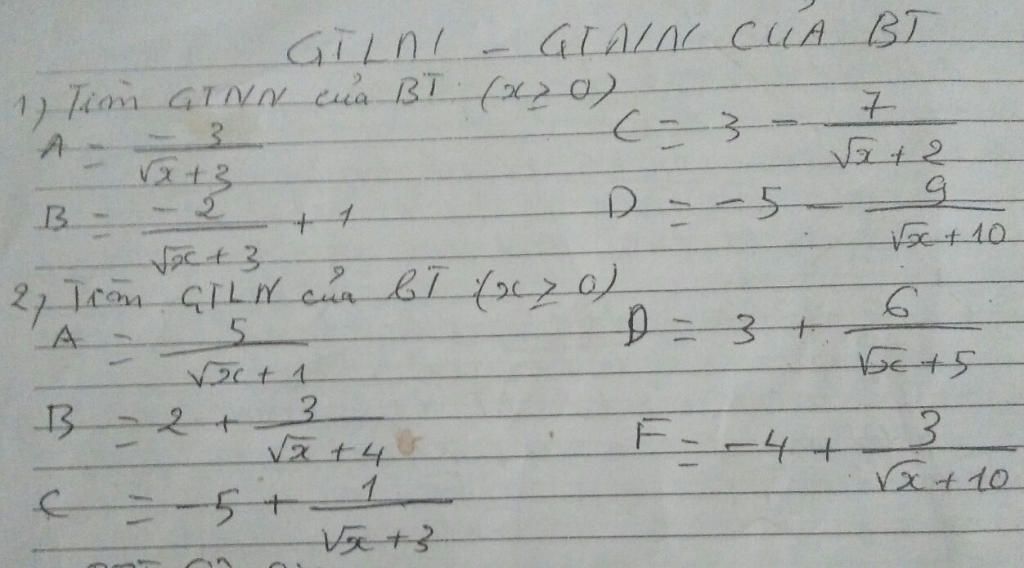 GTLN - GTNN CỦA BT
1) Tìm GTNN của BT (x ≥ 0)
A = -3/(√x + 3)
C = 3 - 7/(√x + 2)
B = -2/(√x + 3) + 1
D = -5 - 9/(√x + 10)
2) Tìm GTLN của BT (x ≥ 0)
A = 5/(√x + 1)
D = 3 + 6/(√x + 5)
B = 2 + 3/(√x + 4)
F = -4 + 3/(√x + 10)
C = -5 + 1/(√x + 3)